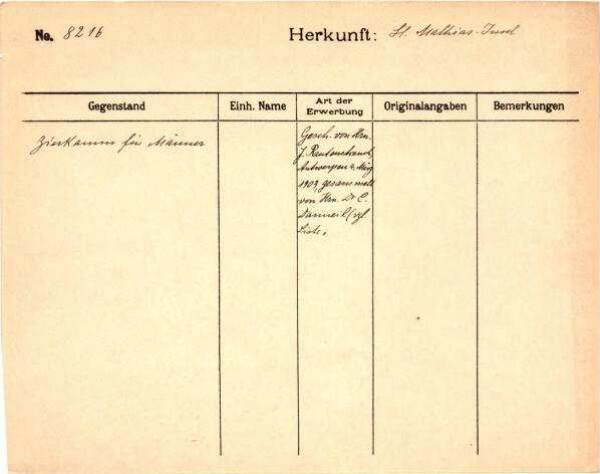 No. 8216 Herkunft: St. Mathias-Insel
Gegenstand Einh. Name Art der Erwerbung Originalangaben Bemerkungen
Zierkamm für Männer
Gesch. von Hrn.
J.
Antwerpen, März
1903, gesammelt
von Hrn. Dr. C.
Danneil (vgl.
Liste.